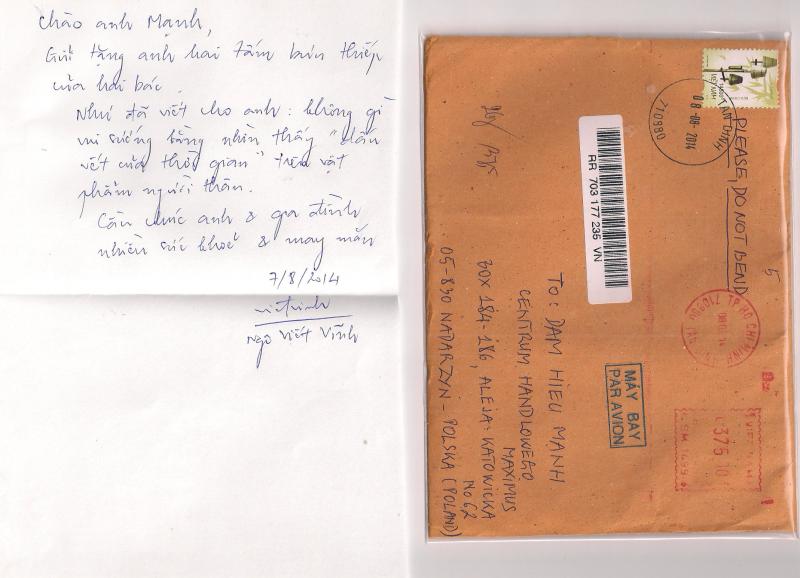 Chào anh Mạnh,
Gửi tặng anh hai tấm bưu thiếp
của hai bác.
Như đã viết cho anh: không gì
vui sướng bằng nhìn thấy "dấu
vết của thời gian" trên vật
phẩm người thân.
Cầu chúc anh & gia đình
nhiều sức khoẻ & may mắn
7/8/2014
Ngô Viết Vĩnh
VIETNAM
TAN DINH
08-08-2014
710980
PLEASE, DO NOT BEND
5
RR 703 177 235 VN
TO: DAM HIEU MANH
CENTRUM HANDLOWEGO
MAXIMUS
BOX 184-186, ALEJA: KATOWICKA
No 62
05-830 NADARZYN - POLSKA (POLAND)
MÁY BAY
PAR AVION
TP HO CHI MINH
VIET NAM